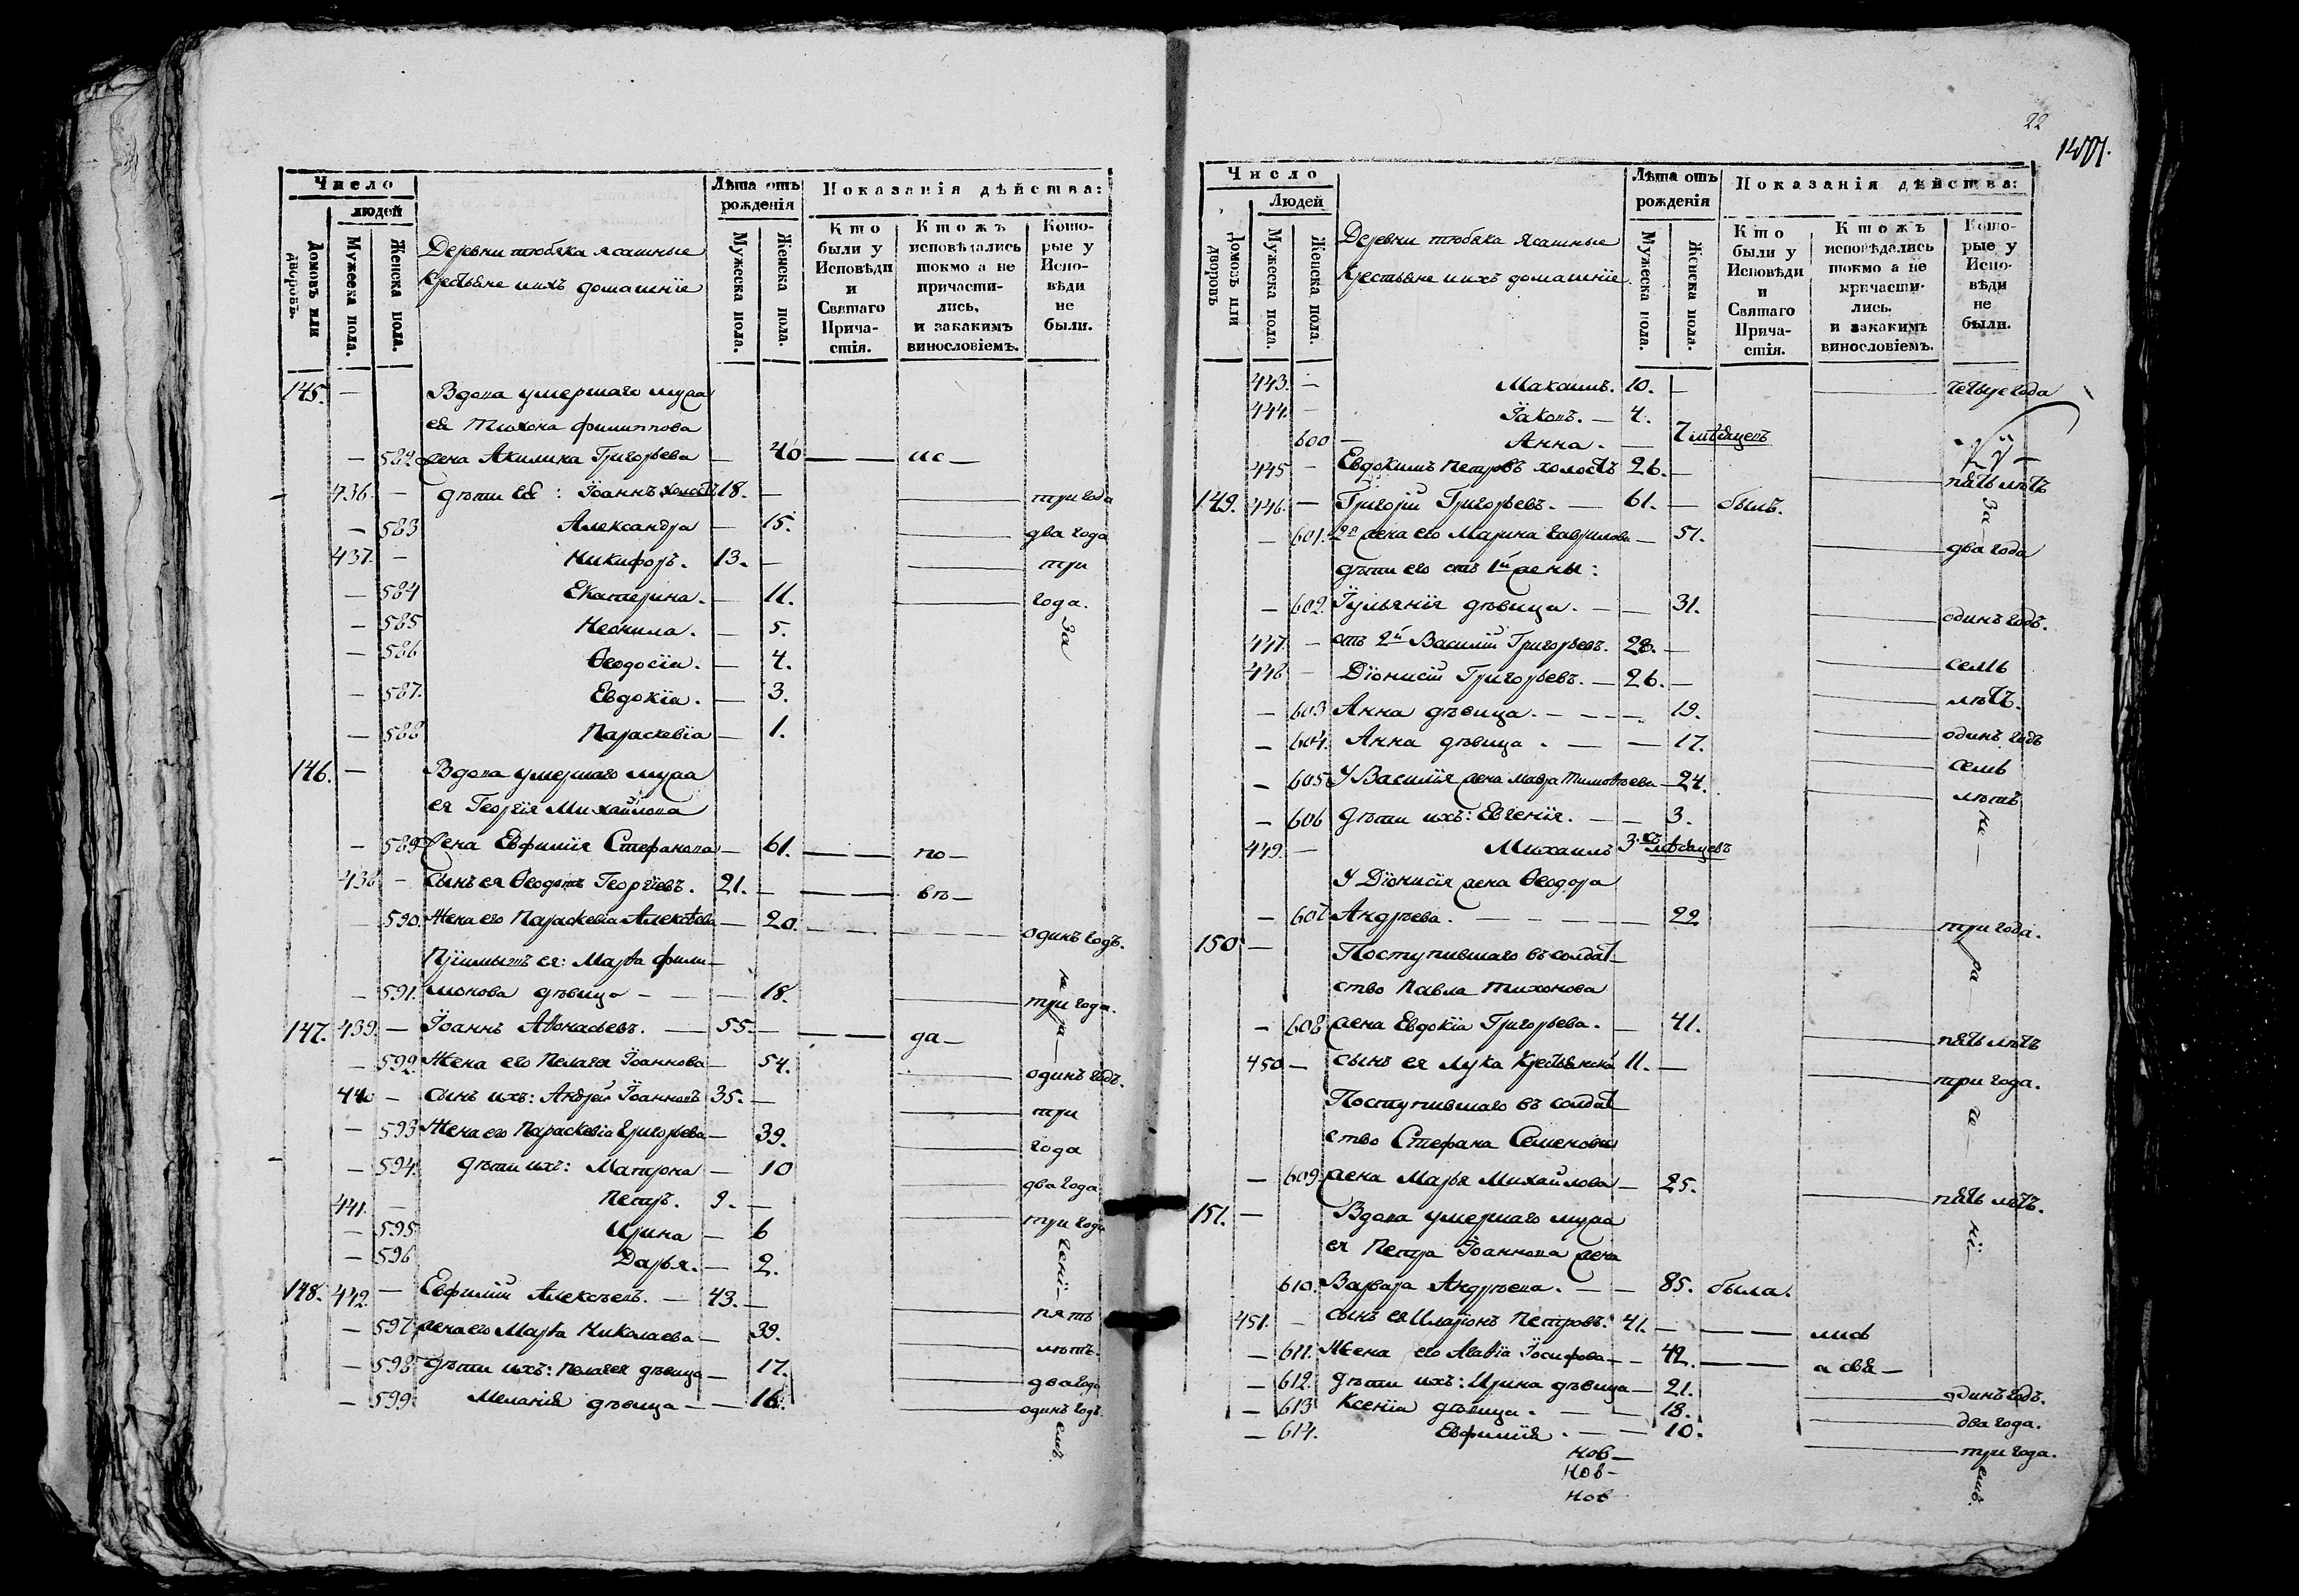 Число
людей
Домовъ или дворовъ.
Мужеска пола.
Женска пола.
Деревни тюбяка ясашные
Крестьяне и ихъ домашніе
Лѣта отъ рожденія
Мужеска пола.
Женска пола.
Показанія дѣйства:
Кто были у Исповѣди и Святаго Причастія.
Ктожъ исповѣдались токмо а не причастились, и закакимъ винословіемъ.
Которые у Исповѣди не были.
145. — Вдова умершаго мужа
ея Тихона филиппова
— 582 жена Акилина Григорьева — 40 — — ис —
436. — дѣти ея: Іоаннъ холостъ 18. — — три года
— 583 Александра — 15. — два года
437. — Никифоръ. 13. — — три
— 584 Екатерина. — 11. — года.
— 585 Неонила. — 5. За
— 586 Ѳеодосія. — 4.
— 587. Евдокія. — 3.
— 588 Параскевія — 1.
146. — Вдова умершаго мужа
ея Георгія Михайлова
— 589 жена Евфимія Стефанова — 61. — — по —
438 — Сынъ ея Ѳеодотъ Георгіевъ. 21. — — вѣ —
590. Жена его Параскевія Алексѣева — 20. — — — — одинъ годъ.
Пріимышъ ея: Марѳа фили-
— 591. монова дѣвица — — 18. — три года.
147. 439. — Іоаннъ Аѳонасьевъ. — 55. — — — да —
— 592. Жена его Пелагея Іоаннова — 54. — одинъ годъ.
440 — сынъ ихъ: Андрей Іоанновъ 35. — — три
— 593 Жена его Параскевія Григорьева — 39. — года
— 594. дѣти ихъ: Матрона — 10 — два года
441. — Петръ. 9. — — три года
— 595 Ирина — 6
— 596 Дарья. — 2.
148. 442. — Евфимій Алексѣевъ. — 43. — — пять
— 597 жена его Марѳа Николаева — 39. — лѣтъ.
— 598 дѣти ихъ: Пелагея дѣвица — 17. — два года
— 599. Меланія дѣвица — — 16. — одинъ годъ.
22
Число
Людей
Домовъ или дворовъ
Мужеска пола.
Женска пола.
Деревни тюбяка Ясашные
Крестьяне и ихъ домашніе.
Лѣта отъ рожденія
Мужеска пола.
Женска пола.
Показанія дѣйства:
Кто были у Исповѣди и Святаго Причастія.
Ктожъ исповѣдались токмо а не причастились. и закакимъ винословіемъ.
Которые у Исповѣди не были.
443. — Максимъ. 10. — — четыре года
444. — Іаковъ. — 4.
600 — Анна. — 7 мѣсяцевъ
445 — Евдокимъ Петровъ холостъ 26. — — пять лѣтъ
149. 446. — Григорій Григорьевъ. — 61. — былъ. За
— 601. 2я жена его Марина гаврилова — 51. — два года
дѣти его отъ 1й жены:
— 602. Іульянія дѣвица. — — 31. — одинъ годъ.
447. — отъ 2й Василій Григорьевъ. 28. — — семь
448 — Діонисій Григорьевъ. — 26. — — лѣтъ.
— 603 Анна дѣвица. — — 19. — одинъ годъ
— 604. Анна дѣвица. — — 17. — семь
— 605 У Василія жена мавра Тимоѳѣева — 24. — лѣтъ
— 606 дѣти ихъ: Евгенія. — — 3.
449. — Михаилъ 3.хъ мѣсяцевъ
У Діонисія жена Ѳеодора
— 607 Андрѣева. — — — 22 — три года.
150 — Поступившаго въ солдат-
ство Павла Тихонова
— 608 жена Евдокія Григорьева. — 41. — пять лѣтъ
450 — сынъ ея Лука 11. — — три года.
Поступившаго въ солдат-
ство Стефана Семенова
— 609. жена Марья Михайлова — 25. — пять лѣтъ.
151. — Вдова умершаго мужа
ея Петра Іоаннова жена
610. Варвара Андрѣева. — — 85. была.
451. — сынъ ея Иларіонъ Петровъ. 41. — — — лисѣ
— 611. Жена его Агаѳія Іосифова — — 42. — — а свя —
— 612. дѣти ихъ: Ирина дѣвица — 21. — одинъ годъ.
— 613 Ксенія дѣвица. — — 18. — два года.
— 614. Евфимія. — — 10. — три года.
нов —
нов —
нов